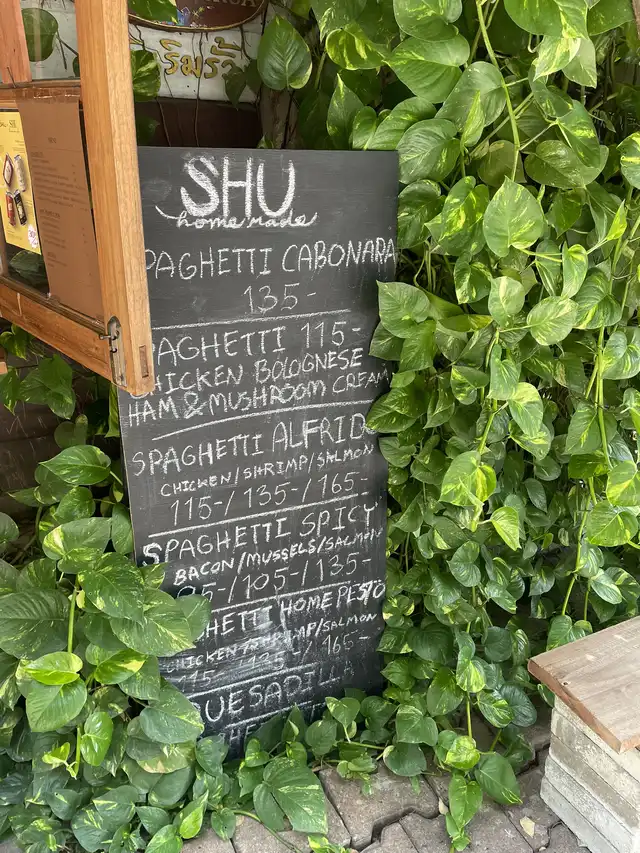 ริมรั้ว
SHU
home made
PAGHETTI CABONARA
135-
AGHETTI 115-
HICKEN BOLOGNESE
HAM & MUSHROOM CREAM
SPAGHETTI ALFRID
CHICKEN/SHRIMP/SALMON
115-/135-/165-
SPAGHETTI SPICY
BACON/MUSSELS/SALMON
95-/105-/135-
GHETTI HOME PESTO
CHICKEN/SHRIMP/SALMON
115-/135-/165-
QUESADILLA